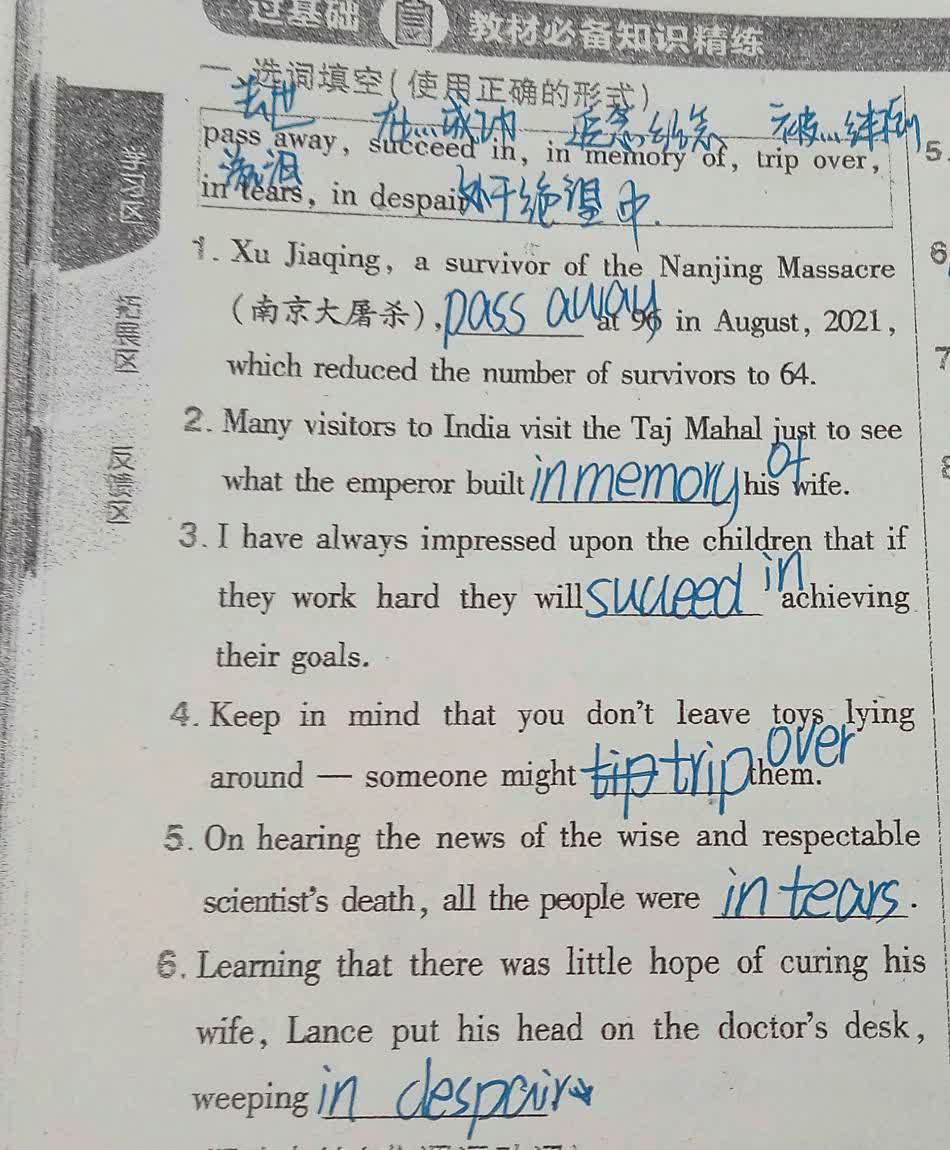 过基础 教材必备知识精练
一、选词填空(使用正确的形式)
去世 在...成功 追念纪念 被...绊倒
pass away, succeed in, in memory of, trip over,
满泪
in tears, in despair 处于绝望中.
1. Xu Jiaqing, a survivor of the Nanjing Massacre
(南京大屠杀), pass away at 96 in August, 2021,
which reduced the number of survivors to 64.
2. Many visitors to India visit the Taj Mahal just to see
what the emperor built in memory of his wife.
3. I have always impressed upon the children that if
they work hard they will succeed in achieving
their goals.
4. Keep in mind that you don't leave toys lying
around — someone might trip over them.
5. On hearing the news of the wise and respectable
scientist's death, all the people were in tears.
6. Learning that there was little hope of curing his
wife, Lance put his head on the doctor's desk,
weeping in despair
拓展区
反馈区
5.
6
7